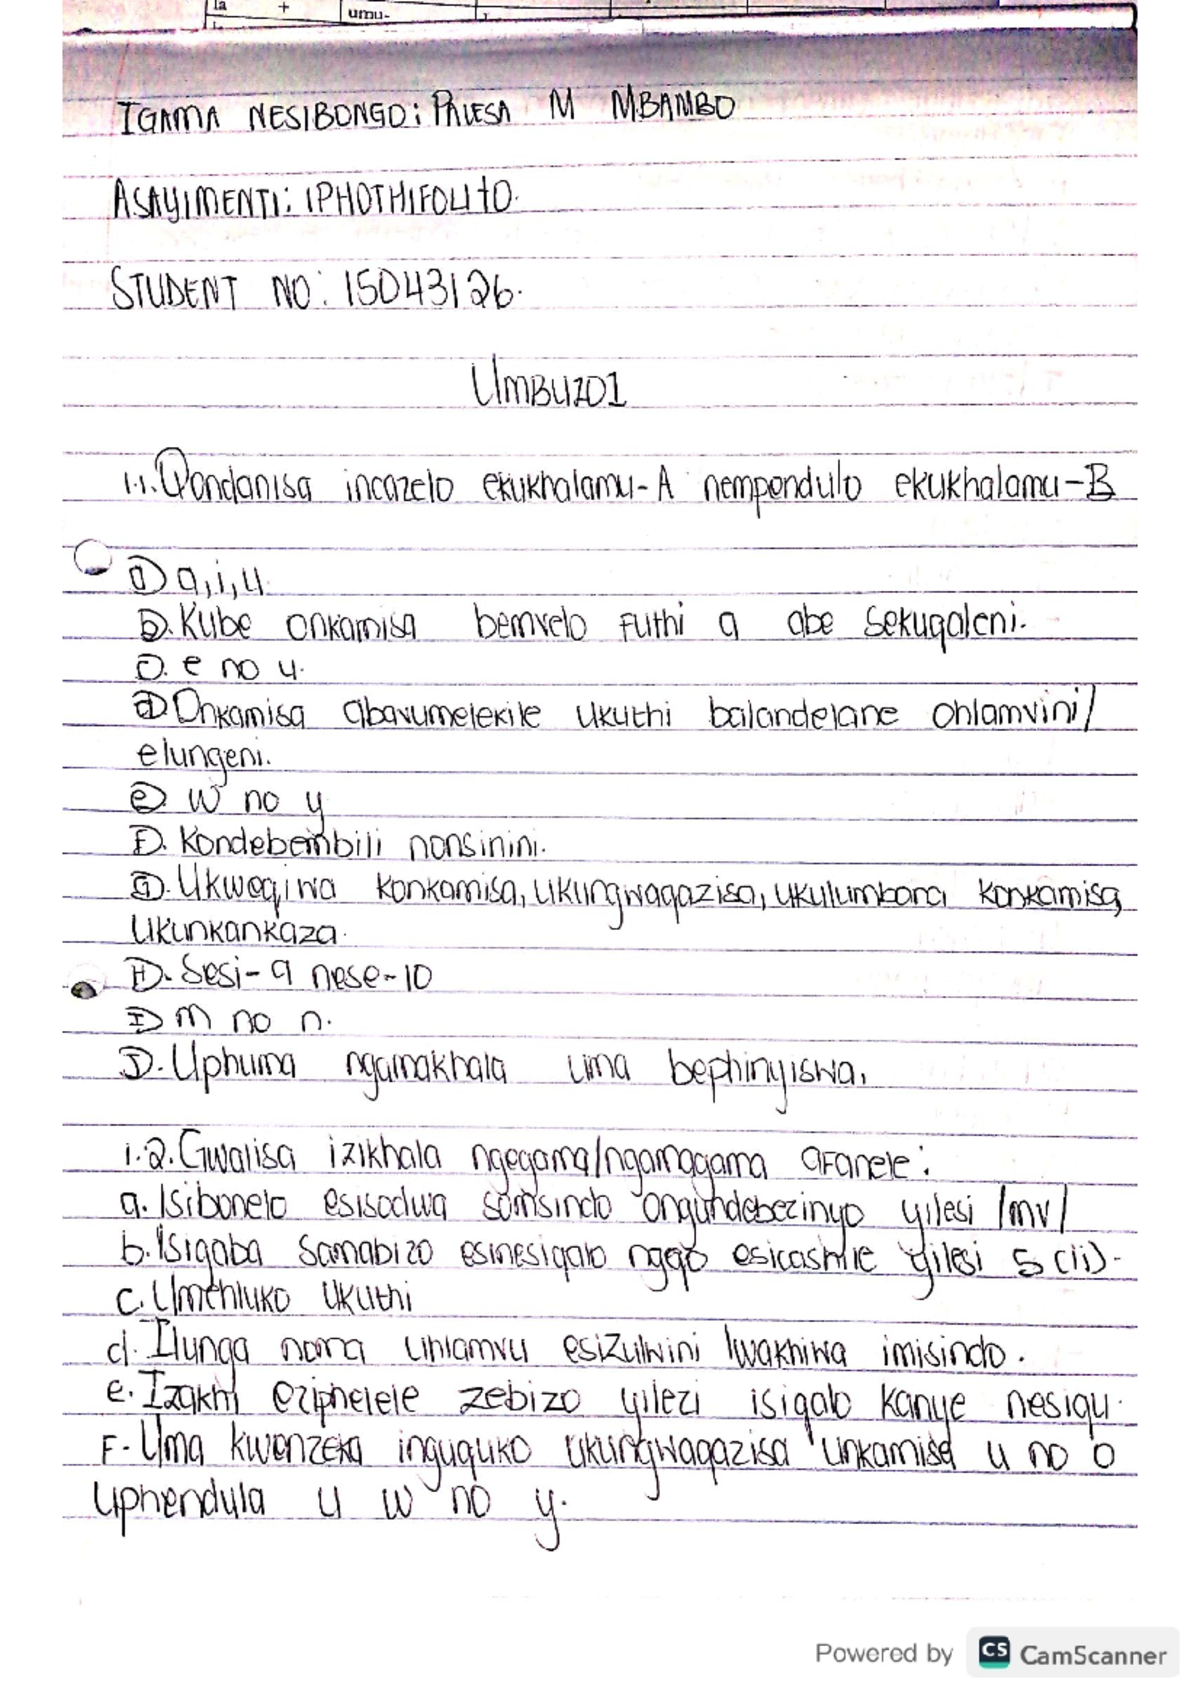 la + umu-
IGAMA NESIBONGO: PALESA M MBAMBO
ASAYIMENTI: IPHOTHIFOLItO.
STUDENT NO: 15043126.
UMBUZO1
1.1. Qondanisa incazelo ekukhalamu-A nempendulo ekukhalamu-B
a) a, i, u.
b. Kube onkamisa bemvelo futhi a abe sekuqaleni.
c. e no u.
d Onkamisa abavumelekile ukuthi balandelane ohlamvini/
elungeni.
e w no y
F. Kondebembili nonsinini.
G. Ukweqiwa konkamisa, ukungwaqazisa, ukulumbana konkamisa,
Ukunkankaza.
H. Sesi-9 nese-10
I m no n.
J. Uphuma ngamakhala uma bephinyiswa.
1.2. Gwalisa izikhala ngegama/ngamagama afanele:
a. Isibonelo esisodwa somsindo ongundebezinyo yilesi /mv/
b. Isigaba samabizo esinesiqalo ngqo esicashile yilesi 5 (li).
c. Umehluko ukuthi
d. Ilunga noma uhlamvu esiZulwini lwakhiwa imisindo.
e. Izakhi eziphelele zebizo yilezi isiqalo kanye nesiqu.
F. Uma kwenzeka inguquko ukungwaqazisa unkamisa u no o
uphendula u w no y.
Powered by CS CamScanner